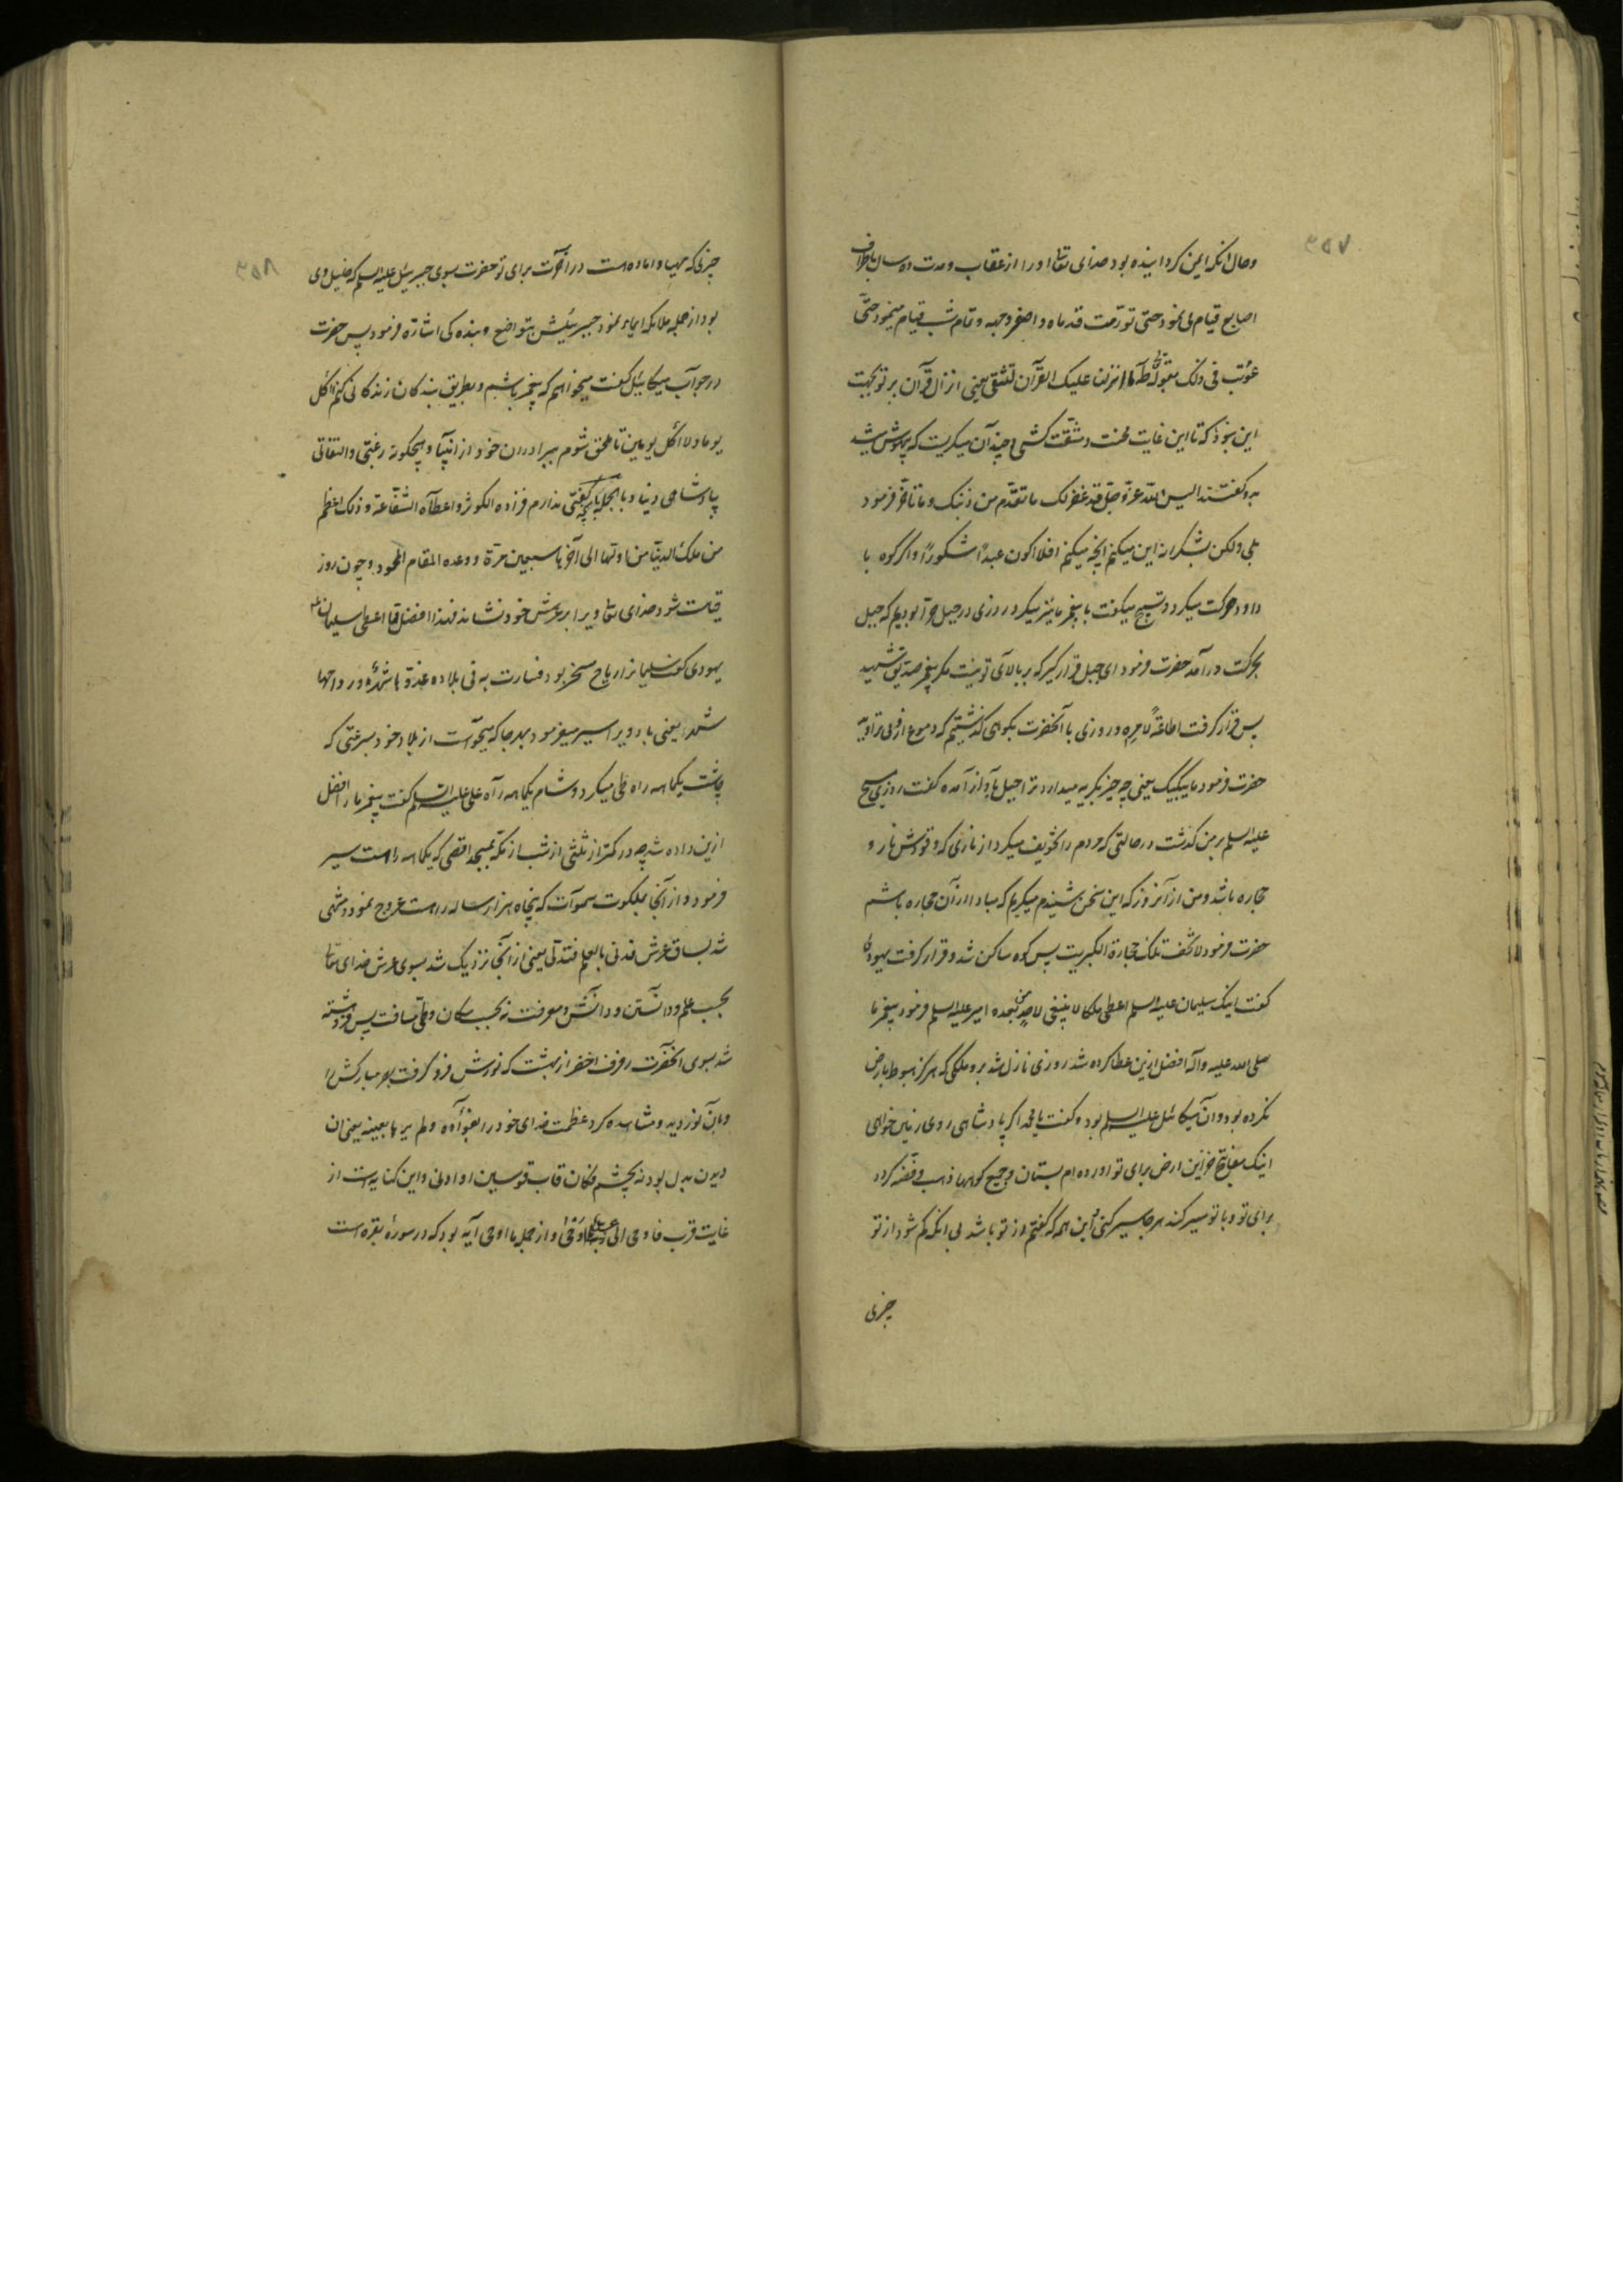 ۳۵۷
وحال انکه ایمن کردانیده بود خدای تعالی اورا از عقاب و مدت ده سال باطراف
اصابع قیام می نمود حتی تورّمت قدماه و اصفر وجهه و تمام شب قیام مینمود حتّی
عوتب فی ذلک بقوله طه ما انزلنا علیک القرآن لتشقی یعنی انزال قرآن بر تو بجهت
این نبود که تا این غایت محنت و مشقت کشی و چندان میکریست که بیهوش میشد
به وکفتند الیس الله عزّ و جلّ قد غفر لک ما تقدّم من ذنبک و ما تأخر فرمود
بلی ولکن بشکرانه این میکنم آنچه میکنم افلا اکون عبدًا شکورًا و اکر کوه با
داود حرکت میکرد و تسبیح میکفت با پیغمبر ما نیز میکرد روزی در جبل حرآ بودیم که جبل
بحرکت درآمد حضرت فرمود ای جبل قرار کیر که بر بالای تو نیست مکر پیغمبر صدیق شهید
پس قرار کرفت اطاعةً لامره و روزی با آنحضرت بکوهی کذشتیم که دموع از وی تراوید
حضرت فرمود ما یبکیک یعنی چه چیز بکریه میدارد ترا جبل بآواز آمده کفت روزی مسیح
علیه السلم بر من کذشت در حالتی که مردم را تخویف میکرد از ناری که وقودش ناس و
حجاره باشد و من از آنروز که این سخن شنیدم میکریم که مبادا از آن حجاره باشم
حضرت فرمود لا تخف تلک حجارة الکبریت پس کوه ساکن شد و قرار کرفت یهودی
کفت اینک سلیمان علیه السلم اعطی ملکا لا ینبغی لاحدٍ من بعده امیر علیه السلم فرمود پیغمبر ما
صلی الله علیه وآله افضل ازین عطا کرده شد روزی نازل شد برو ملکی که هرکز هبوط بارض
نکرده بود و ان میکائیل علیه السلم بود و کفت یا محمد اکر پادشاهی روی زمین خواهی
اینک مفاتیح خزاین ارض برای تو آورده ام بستان و جمیع کوهها ذهب و فضه کردد
برای تو و با تو سیر کند هر جا سیر کنی و این همه که کفتم از تو باشد بی انکه کم شود از تو
چیزی
۳۵۸
چیزی که مهیا و اماده است در آخرت برای تو حضرت بسوی جبرئیل علیه السلم که خلیل وی
بود از جمله ملائکه ایماء نمود جبرئیلش بتواضع و بنده کی اشارة فرمود پس حضرت
در جواب میکائیل کفت میخواهم که پیغمبر باشم و بطریق بندکان زندکانی کنم آکل
یوما ولا آکل یومین تا ملحق شوم ببرادران خود از انبیآ و هیچکونه رغبتی و التفاتی
بپادشاهی دنیا و بانچه کفتی ندارم فزاده الکوثر و اعطاه الشفاعة و ذلک اعظم
من ملک الدنیا من اولها الی آخرها سبعین مرّة و وعده المقام المحمود و چون روز
قیامت شود خدای تعالی ویرا بر عرش خود نشاند فهذا افضل مما اعطی سلیمان
یهودی کفت سلیمان را ریاح مسخر بود فسارت به فی بلاده غدوّها شهرٌ و رواحها
شهر یعنی باد ویرا سیر میفرمود بهر جا که میخواست از بلاد خود بسرعتی که
چاشت یکماهه راه طی میکرد و شام یکماهه راه علی علیه السلم کفت پیغمبر ما را افضل
ازین داده شد چه در کمتر از ثلثی از شب از مکّه بمسجد اقصی که یکماهه راهست سیر
فرمود و از آنجا بملکوت سموات که پنجاه هزار ساله راهست عروج نمود و منتهی
شد بساق عرش فدنی بالعلم فتدلّی یعنی از آنجا نزدیک شد بسوی عرش خدای تعالی
بحسب علم و دانستن و دانش و معرفت نه بحسب مکان و طی مسافت پس فروهشته
شد بسوی آنحضرت رفرف اخضر از بهشت که نورش فرو کرفت بصر مبارکش را
و بآن نور دید و مشاهده کرد عظمت خدای خود را بفؤاده ولم یرها بعینه یعنی ان
دیدن بدل بود نه بچشم فکان قاب قوسین او ادنی و این کنایه است از
غایت قرب فاوحی الی عبده ما اوحی و از جمله ما اوحی آیه بود که در سورهٔ بقره است